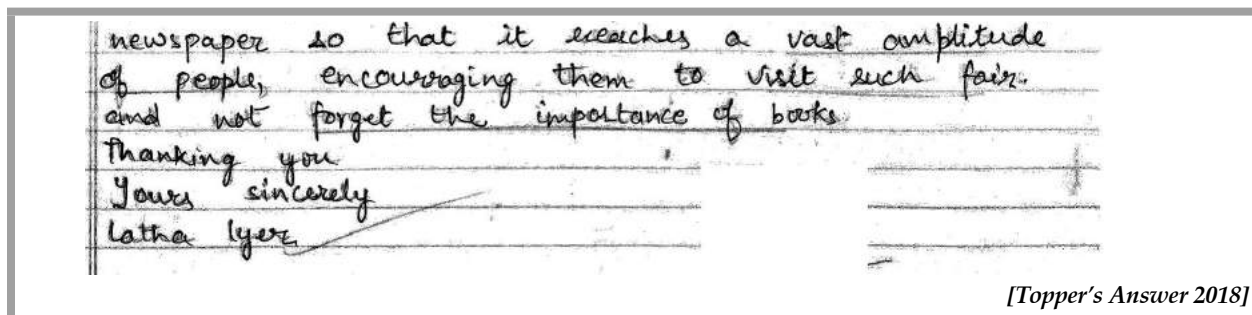 newspaper so that it reaches a vast amplitude
of people, encouraging them to visit such fair.
and not forget the importance of books
Thanking you
Yours sincerely
Latha Iyer
[Topper's Answer 2018]